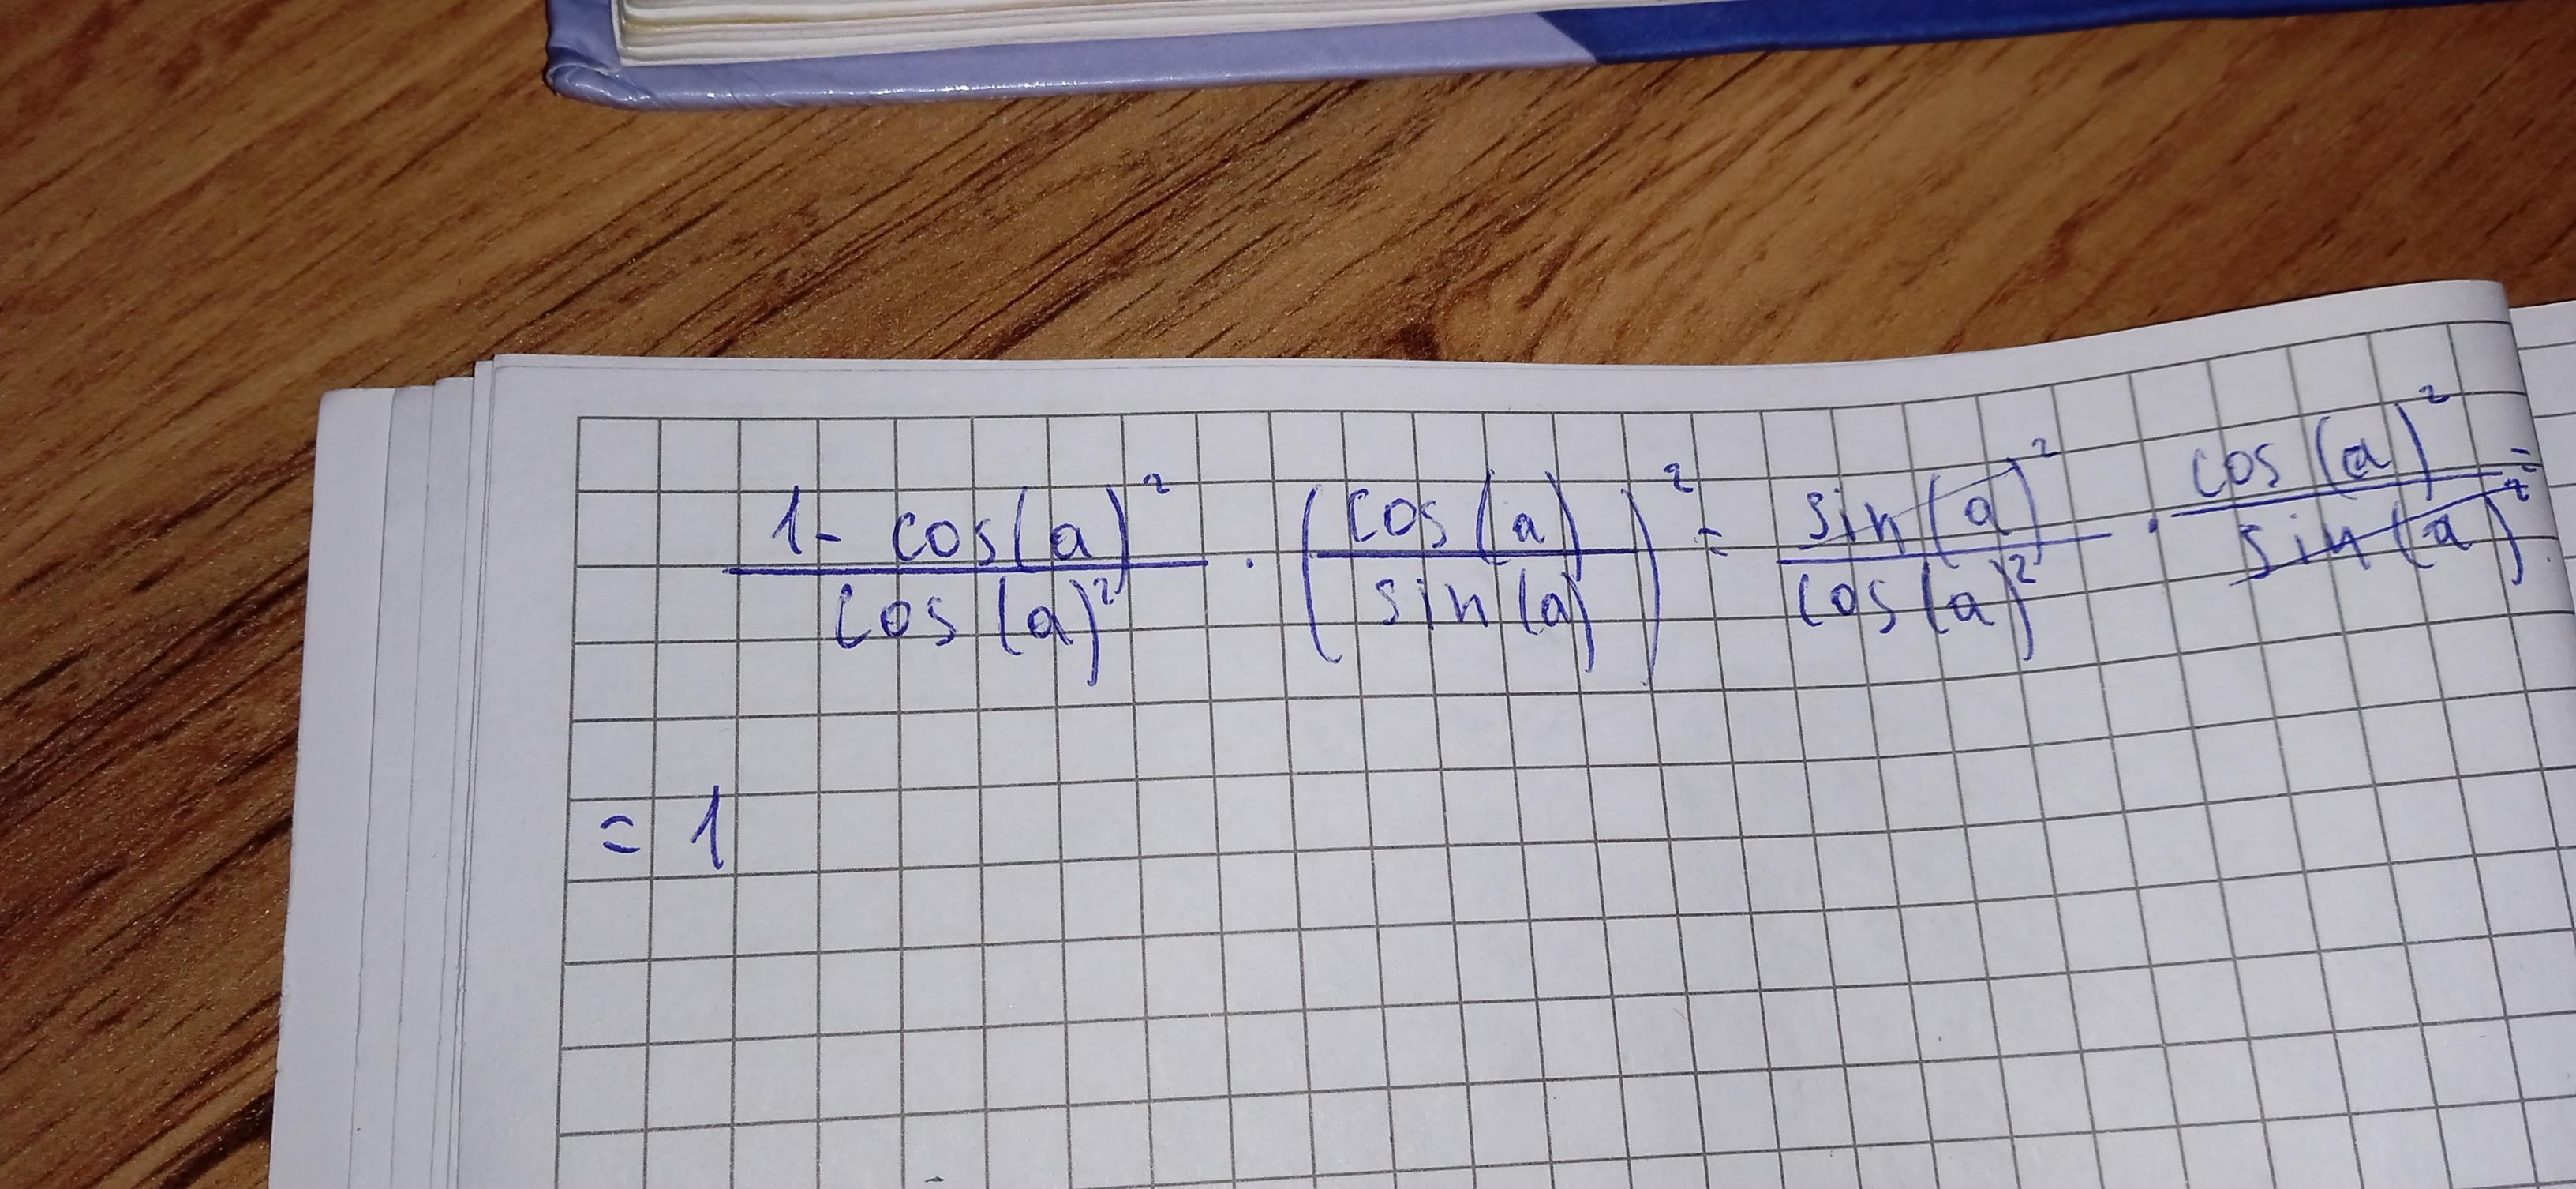 (1 - cos(a)²)/(cos(a)²) · (cos(a)/sin(a))² = sin(a)²/cos(a)² · cos(a)²/sin(a)² =
= 1